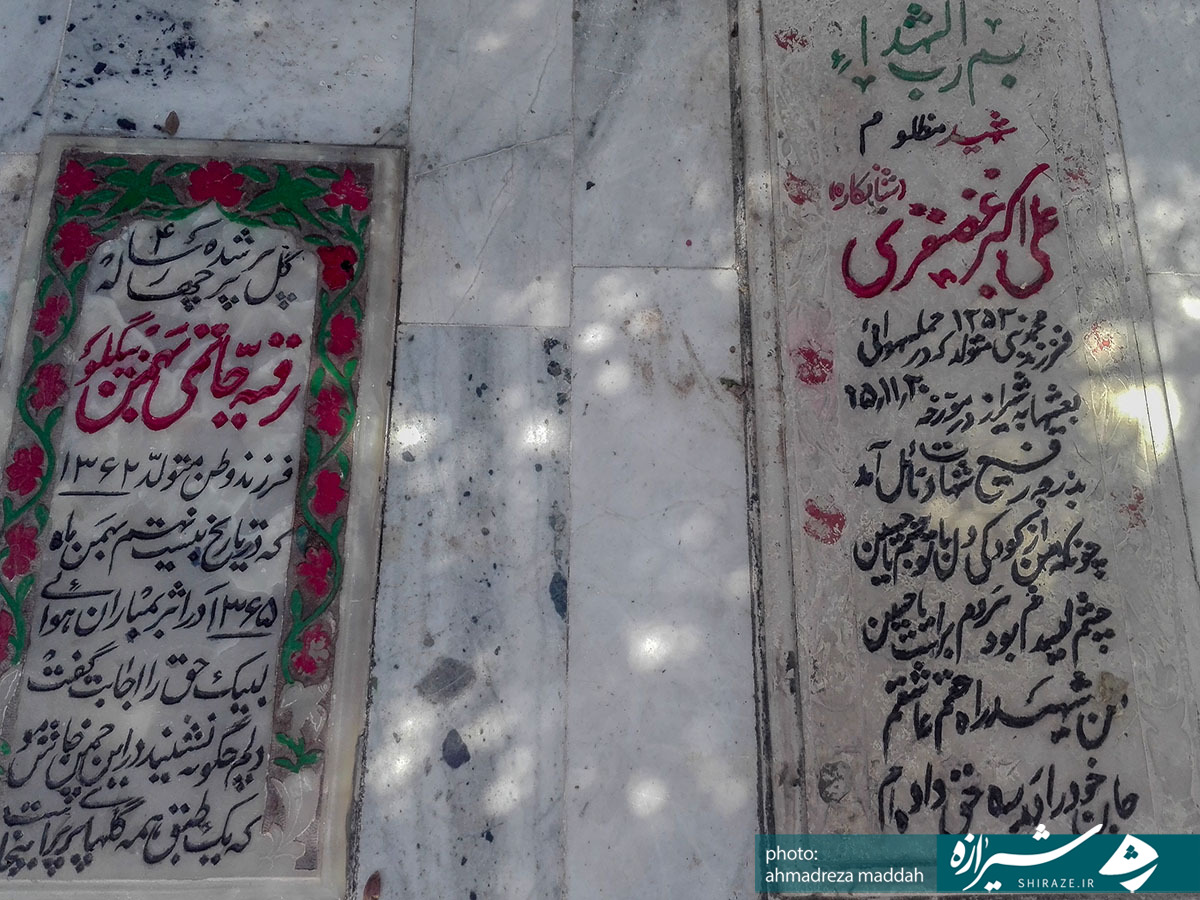 بسم رب الشهداء
شهید مظلوم
علی اکبر غضنفری
فرزند متولد ۱۲۵۳ که در حمله هوائی
بعثیها به شیراز در مورخه ۶۵/۱۱/۲۰
بدرجه رفیع شهادت نائل آمد
چونکه من از کودکی دل با تو بستم یا حسین
چشم امیدم بود بر است یا حسین
من شهید راه حقم عاشقم
جان خود را در ره حق داده ام
گل پرپر شده ۴ ساله
رقیه حاتمی بهمن بیگلو
فرزند وطن متولد ۱۳۶۲
که در تاریخ بیست نهم بهمن ماه
۱۳۶۵ در اثر بمباران هوائی
لبیک حق را اجابت گفت
دلم چگونه نشنید در این چمن خاموش
که یک طبق همه گلها پرپر اینجا
photo:
ahmadreza maddah
شیرازه
SHIRAZE.IR